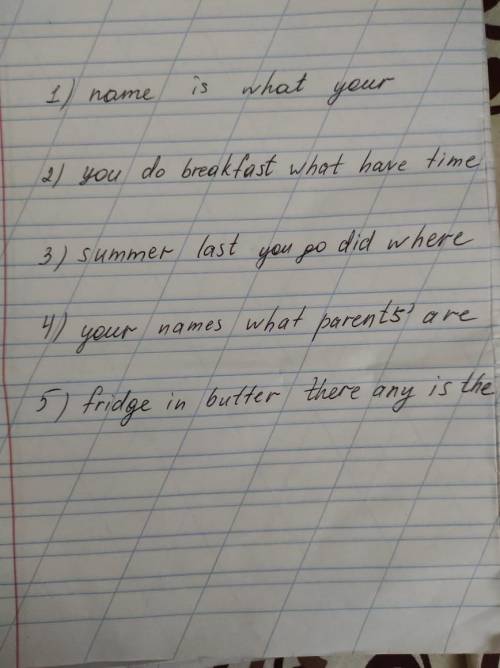 1) name is what your
2) you do breakfast what have time
3) summer last you go did where
4) your names what parents' are
5) fridge in butter there any is the